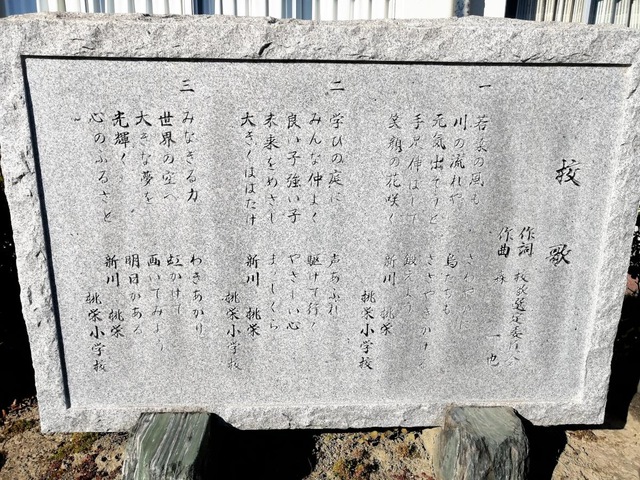 校歌
作詞 校歌選定委員会
作曲 森 一也
一
若葉の風も さわやか
川の流れや 鳥たちも
元気出そうと ささやきかける
手足伸ばして 鍛えよう
笑顔の花咲く 新川 桃栄
桃栄小学校
二
学びの庭に 声あふれ
みんな仲よく 駆けて行く
良い子強い子 やさしい心
未来をめざし まっしぐら
大きくはばたけ 新川 桃栄
桃栄小学校
三
みなぎる力 わきあがり
世界の空へ 虹かけて
大きな夢を 画いてみよう
光輝く 明日がある
心のふるさと 新川 桃栄
桃栄小学校